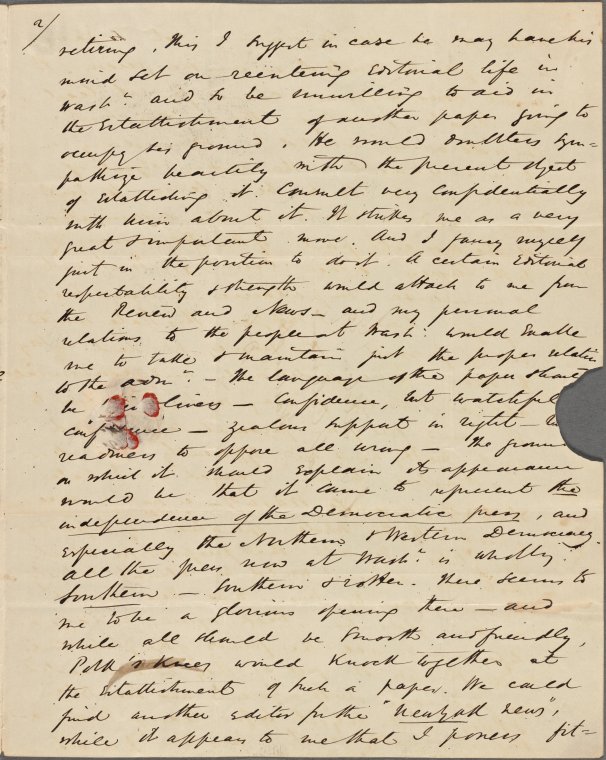 2/
retiring. This I suggest in case he may have his
mind set on reëntering Editorial life in
Washn. and to be unwilling to aid in
the Establishment of another paper going to
occupy his ground. He would doubtless sym=
pathize heartily with the present object
of Establishing it. Consult very confidentially
with him about it. It strikes me as a very
great & important move. And I fancy myself
just in the position to do it. A certain Editorial
respectability & strength would attach to me from
the Review and News – and my personal
relations to the people at Wash. would Enable
me to take & maintain just the proper relation
to the admn. – The language of the paper should
be – Confidence, but watchful
confidence – zealous support in right –
readiness to oppose all wrong – The ground
on which it should explain its appearance
would be that it came to represent the
independence of the Democratic press, and
Especially the Northern & Western Democracy.
All the press now at Washn. is wholly
Southern – Southern & rotten. There seems to
me to be a glorious opening there – and
while all should be smooth and friendly,
Polk's knees would knock together at
the Establishment of such a paper. We could
find another Editor for the "New York News",
while it appears to me that I possess fit=